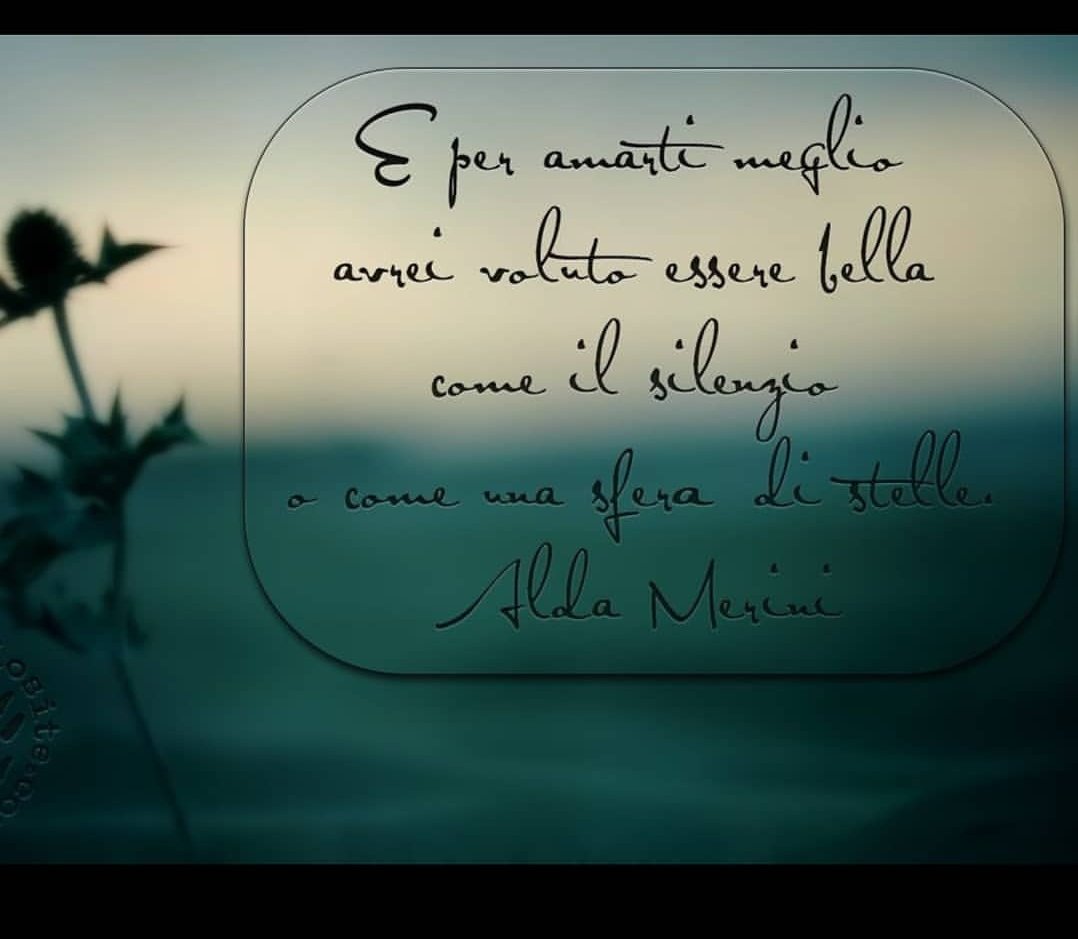 E per amarti meglio
avrei voluto essere bella
come il silenzio
o come una sfera di stelle.
Alda Merini
osite.co